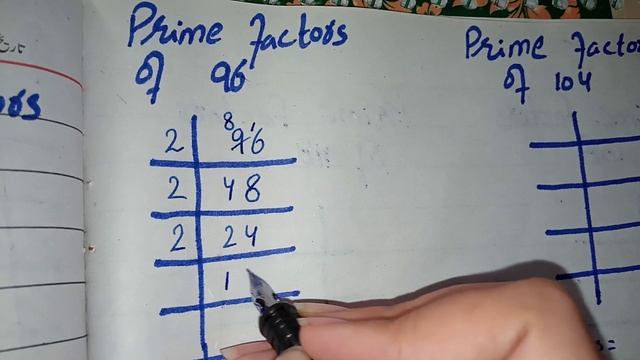 Prime factors
of 96
8 1
2 96
2 48
2 24
1
Prime facto
of 104
ors
s=